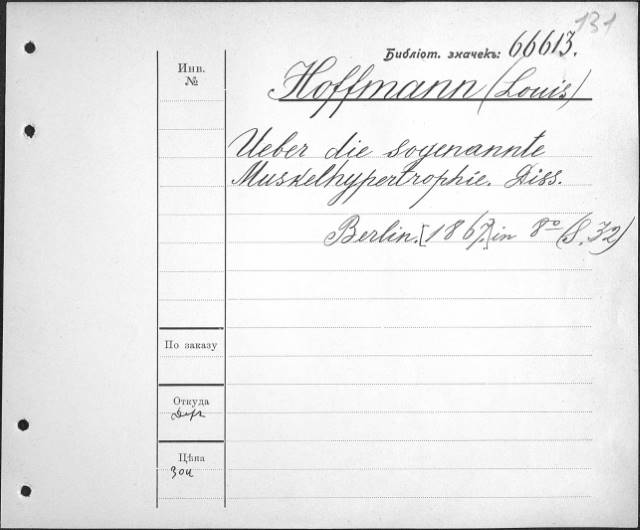 131
Библіот. значекъ: 66613.
Инв.
№
Hoffmann (Louis)
Ueber die sogenannte
Muskelhypertrophie. Diss.
Berlin. [1867.] in 8º (S. 32)
По заказу
Откуда
Цѣна